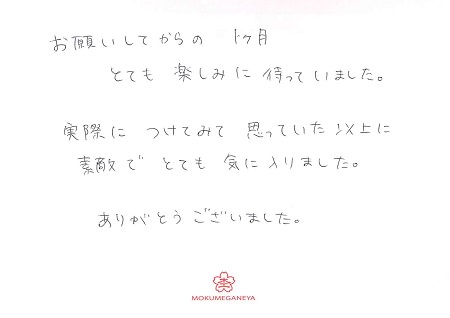 お願いしてからの 1ヶ月
とても 楽しみに 待っていました。
実際に つけてみて 思っていた以上に
素敵で とても 気に入りました。
ありがとうございました。
MOKUMEGANEYA